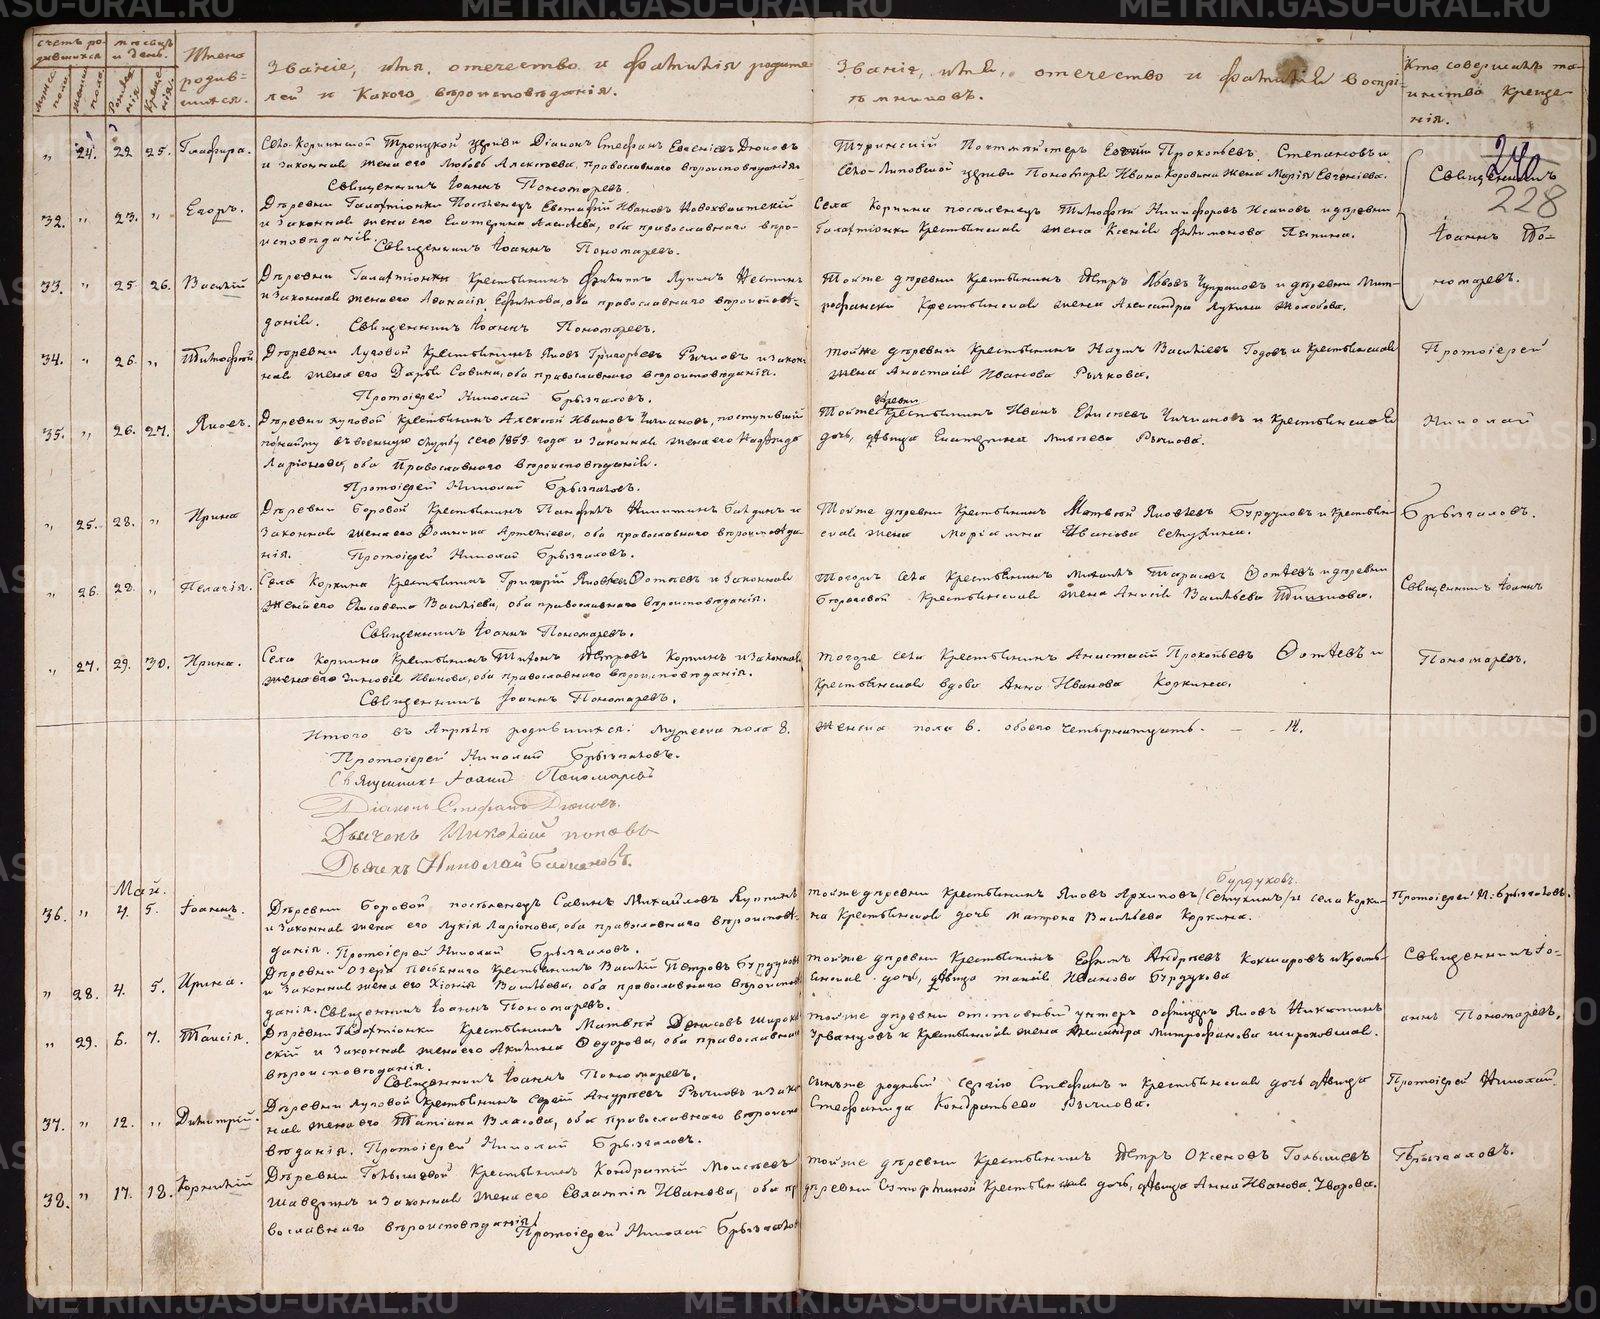 METRIKI.GASU-URAL.RU
счетъ ро-
дившихся
мѣсяцъ
и день.
мужес.
пола
женск.
пола
Рожде-
нія
Креще-
нія.
Имена
родив-
шихся.
Званіе, имя, отечество и фамилія родите-
лей и какого вѣроисповѣданія.
Званіе, имя, отечество и фамилія воспрі-
емниковъ.
Кто совершалъ та-
инство Креще-
нія.
240
228
„ 24. 22 25. Глафира.
Село-Коркинской Троицкой церкви Діаконъ Стефанъ Евгеніевъ
и законная жена его Любовь Алексѣева, православнаго вѣроисповѣданія
Священникъ Іоаннъ Пономаревъ.
Туринскій Почтмейстеръ Прокопьевъ Степановъ и
Село-Липовской церкви Пономаря Ивана Коровина жена Марія Евгеніева.
Священникъ
Іоаннъ По-
номаревъ.
32. „ 23. „ Егоръ.
Деревни Галактіонки Поселенецъ Евстафій Ивановъ
и законная жена его Екатерина Алексѣева, оба православнаго вѣро-
исповѣданія. Священникъ Іоаннъ Пономаревъ.
Села Коркина поселенецъ Тимофей Никифоровъ Исаковъ и деревни
Галактіонки Крестьянская жена Ксенія Филимонова Пятина.
33. „ 25 26. Василій
Деревни Галактіонки Крестьянинъ Филипъ Лукинъ
и законная жена его Афанасія Ефимова, оба православнаго вѣроисповѣ-
данія. Священникъ Іоаннъ Пономаревъ.
Тойже деревни Крестьянинъ Петръ Львовъ Чупраковъ и деревни Мит-
рофански Крестьянская жена Александра Лукина Жолобова.
34. „ 26. „ Тимофей
Деревни Луговой Крестьянинъ Яковъ Григорьевъ Рычковъ и закон-
ная жена его Дарья Савина, оба православнаго вѣроисповѣданія.
Протоіерей Николай Брызгаловъ.
тойже деревни Крестьянинъ Наумъ Васильевъ Годовъ и Крестьянская
жена Анастасія Иванова Рычкова.
Протоіерей
Николай
Брызгаловъ.
35. „ 26. 27. Яковъ.
Деревни Луговой Крестьянинъ Алексѣй Ивановъ Чичкановъ, поступившій
по найму въ военную службу сего 1859 года и законная жена его Надежда
Ларіонова, оба Православнаго вѣроисповѣданія.
Протоіерей Николай Брызгаловъ.
Тойже деревни Крестьянинъ Иванъ Елисѣевъ Чичкановъ и Крестьянская
дочь, дѣвица Екатерина Михѣева Рычкова.
„ 25. 28. „ Ирина
Деревни Боровой Крестьянинъ Панфилъ Никитинъ и
законная жена его Домника Артемьева, оба православнаго вѣроисповѣда-
нія. Протоіерей Николай Брызгаловъ.
Тойже деревни Крестьянинъ Матвей Яковлевъ Бурдуковъ и крестьян-
ская жена Маріамна Иванова Сетухина.
„ 26. 28. „ Пелагія.
Села Коркина Крестьянинъ Григорій Яковлевъ Ѳотѣевъ и законная
жена его Елисавета Васильева, оба православнаго вѣроисповѣданія.
Священникъ Іоаннъ Пономаревъ.
Тогожъ села Крестьянинъ Михаилъ Тарасовъ Ѳотѣевъ и деревни
Крестьянская жена Анисія Васильева
Священникъ Іоаннъ
Пономаревъ.
„ 27. 29. 30. Ирина.
Села Коркина Крестьянинъ Титъ Петровъ Коркинъ и законная
жена его Зиновія Иванова, оба православнаго вѣроисповѣданія.
Священникъ Іоаннъ Пономаревъ.
тогоже села Крестьянинъ Анастасій Прокопьевъ Ѳотѣевъ и
Крестьянская вдова Анна Иванова Коркина.
Итого въ Апрѣлѣ родившихся: мужеска пола 8. женска пола 6. обоего четырнатцать. — 14.
Протоіерей Николай Брызгаловъ.
Священникъ Іоаннъ Пономаревъ
Діаконъ Стефанъ
Дьячекъ Николай Поповъ
Дьячекъ Николай
Май.
36. „ 4. 5. Іоаннъ.
Деревни Боровой поселенецъ Савинъ Михайловъ
и законная жена его Лукія Ларіонова, оба православнаго вѣроисповѣ-
данія. Протоіерей Николай Брызгаловъ.
Бурдуковъ.
тойже деревни Крестьянинъ Яковъ Архиповъ /Сетухинъ/ и села Корки-
на Крестьянская дочь Матрона Васильева Коркина.
Протоіерей Н. Брызгаловъ.
„ 28. 4. 5. Ирина.
Деревни Озера Крестьянинъ Василій Петровъ Бурдуковъ
и законная жена его Хіонія Васильева, оба православнаго вѣроиспов
данія. Священникъ Іоаннъ Пономаревъ.
тойже деревни Крестьянинъ Ефимъ Андреевъ Кокшаровъ и Кресть-
янская дочь, дѣвица Таисія Иванова Бурдукова
Священникъ Іо-
аннъ Пономаревъ.
„ 29. 6. 7. Таисія.
Деревни Галактіонки Крестьянинъ Матвѣй Денисовъ Широков-
скій и законная жена его Акилина Ѳедорова, оба православнаго
вѣроисповѣданія.
Священникъ Іоаннъ Пономаревъ.
тойже деревни отставный унтеръ офицеръ Яковъ Никитинъ
Урванцовъ и Крестьянская жена Александра Митрофанова Широковская.
37. „ 12. „ Димитрій.
Деревни Луговой Крестьянинъ Сергій Рычковъ и закон-
ная жена его Татіана Власова, оба православнаго вѣроиспо-
вѣданія. Протоіерей Николай Брызгаловъ.
сынъже родный Сергію Стефанъ и Крестьянская дочь дѣвица
Стефанида Кондратьева Рычкова.
Протоіерей Николай
Брызгаловъ.
38. „ 17. 18. Корнилій
Деревни Голышевой Крестьянинъ Кондратій Моисеевъ
Шаверинъ и законная жена его Евлампія Иванова, оба пра-
вославнаго вѣроисповѣданія.
Протоіерей Николай Брызгалов
тойже деревни Крестьянинъ Петръ Оксеновъ Голышевъ
деревни Крестьянская дочь, дѣвица Анна Иванова Уварова.
METRIKI.GASU-URAL.RU